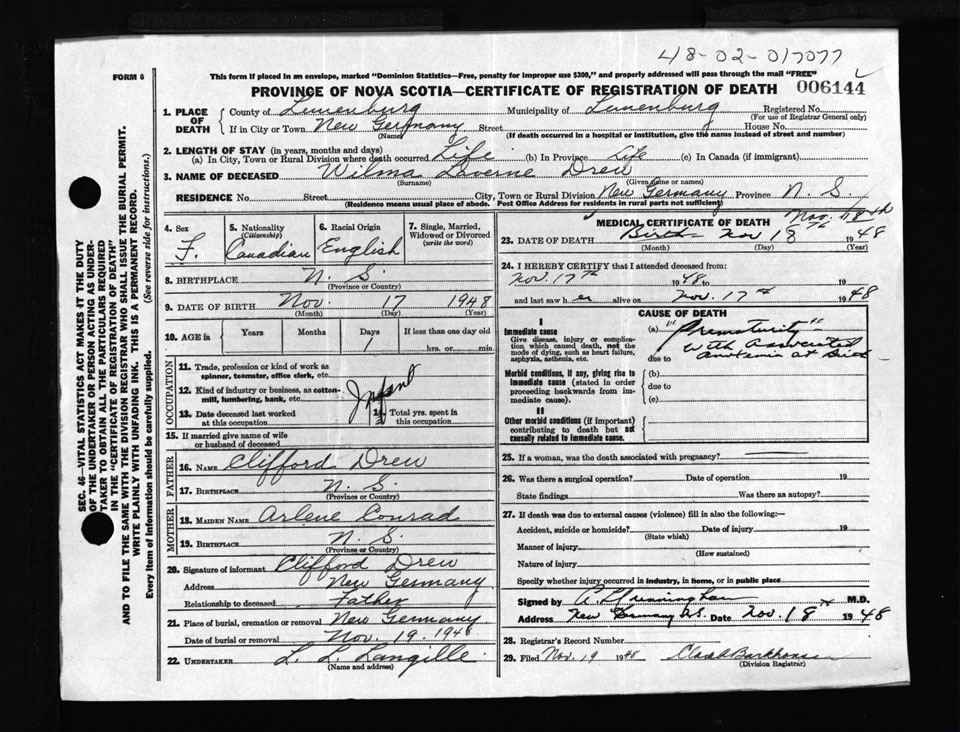 48-02-017077
FORM 6
This form if placed in an envelope, marked "Dominion Statistics—Free, penalty for improper use $300," and properly addressed will pass through the mail "FREE"
PROVINCE OF NOVA SCOTIA—CERTIFICATE OF REGISTRATION OF DEATH 006144
1. PLACE OF DEATH
County of Lunenburg Municipality of Lunenburg Registered No.
(For use of Registrar General only)
If in City or Town New Germany Street House No.
(Name) (If death occurred in a hospital or institution, give the name instead of street and number)
2. LENGTH OF STAY (in years, months and days)
(a) In City, Town or Rural Division where death occurred Life (b) In Province Life (c) In Canada (if immigrant)
3. NAME OF DECEASED Wilma Laverne Drew
(Surname) (Given name or names)
RESIDENCE No. Street City, Town or Rural Division New Germany Province N. S.
(Residence means usual place of abode. Post Office Address for residents in rural parts not sufficient)
4. Sex
F.
5. Nationality
(Citizenship)
Canadian
6. Racial Origin
English
7. Single, Married, Widowed or Divorced
(write the word)
8. BIRTHPLACE N. S.
(Province or Country)
9. DATE OF BIRTH Nov. 17 1948
(Month) (Day) (Year)
10. AGE in
Years Months Days If less than one day old
1 hrs. or min.
OCCUPATION
11. Trade, profession or kind of work as spinner, teamster, office clerk, etc.
12. Kind of industry or business, as cotton-mill, lumbering, bank, etc.
Infant
13. Date deceased last worked at this occupation
14. Total yrs. spent in this occupation
15. If married give name of wife or husband of deceased
FATHER
16. NAME Clifford Drew
17. BIRTHPLACE N. S.
(Province or Country)
MOTHER
18. MAIDEN NAME Arlene Conrad
19. BIRTHPLACE N. S.
(Province or Country)
20. Signature of informant Clifford Drew
Address New Germany
Relationship to deceased Father
21. Place of burial, cremation or removal New Germany
Date of burial or removal Nov. 19. 1948
22. UNDERTAKER L. L. Langille
(Name and address)
MEDICAL CERTIFICATE OF DEATH
Nov. 18th
23. DATE OF DEATH Birth Nov 18th 1948
(Month) (Day) (Year)
24. I HEREBY CERTIFY that I attended deceased from:
Nov. 17th 1948 to 19
and last saw her alive on Nov. 17th 1948
CAUSE OF DEATH
I
Immediate cause
Give disease, injury or complication which caused death, not the mode of dying, such as heart failure, asphyxia, asthenia, etc.
(a) "Prematurity"
with associated
due to anoxemia at Birth
Morbid conditions, if any, giving rise to immediate cause (stated in order proceeding backwards from immediate cause).
(b)
due to
(c)
II
Other morbid conditions (if important) contributing to death but not causally related to immediate cause.
25. If a woman, was the death associated with pregnancy?
26. Was there a surgical operation? Date of operation 19
State findings Was there an autopsy?
27. If death was due to external causes (violence) fill in also the following:—
Accident, suicide or homicide? Date of injury 19
(State which)
Manner of injury
(How sustained)
Nature of injury
Specify whether injury occurred in industry, in home, or in public place
Signed by M.D.
Address New Germany N.S. Date Nov. 18th 1948
28. Registrar's Record Number
29. Filed Nov. 19 1948
(Division Registrar)
SEC. 46—VITAL STATISTICS ACT MAKES IT THE DUTY
OF THE UNDERTAKER OR PERSON ACTING AS UNDER-
TAKER TO OBTAIN ALL THE PARTICULARS REQUIRED
IN THE "CERTIFICATE OF REGISTRATION OF DEATH"
AND TO FILE THE SAME WITH THE DIVISION REGISTRAR WHO SHALL ISSUE THE BURIAL PERMIT.
WRITE PLAINLY WITH UNFADING INK. THIS IS A PERMANENT RECORD.
Every item of information should be carefully supplied. (See reverse side for instructions.)